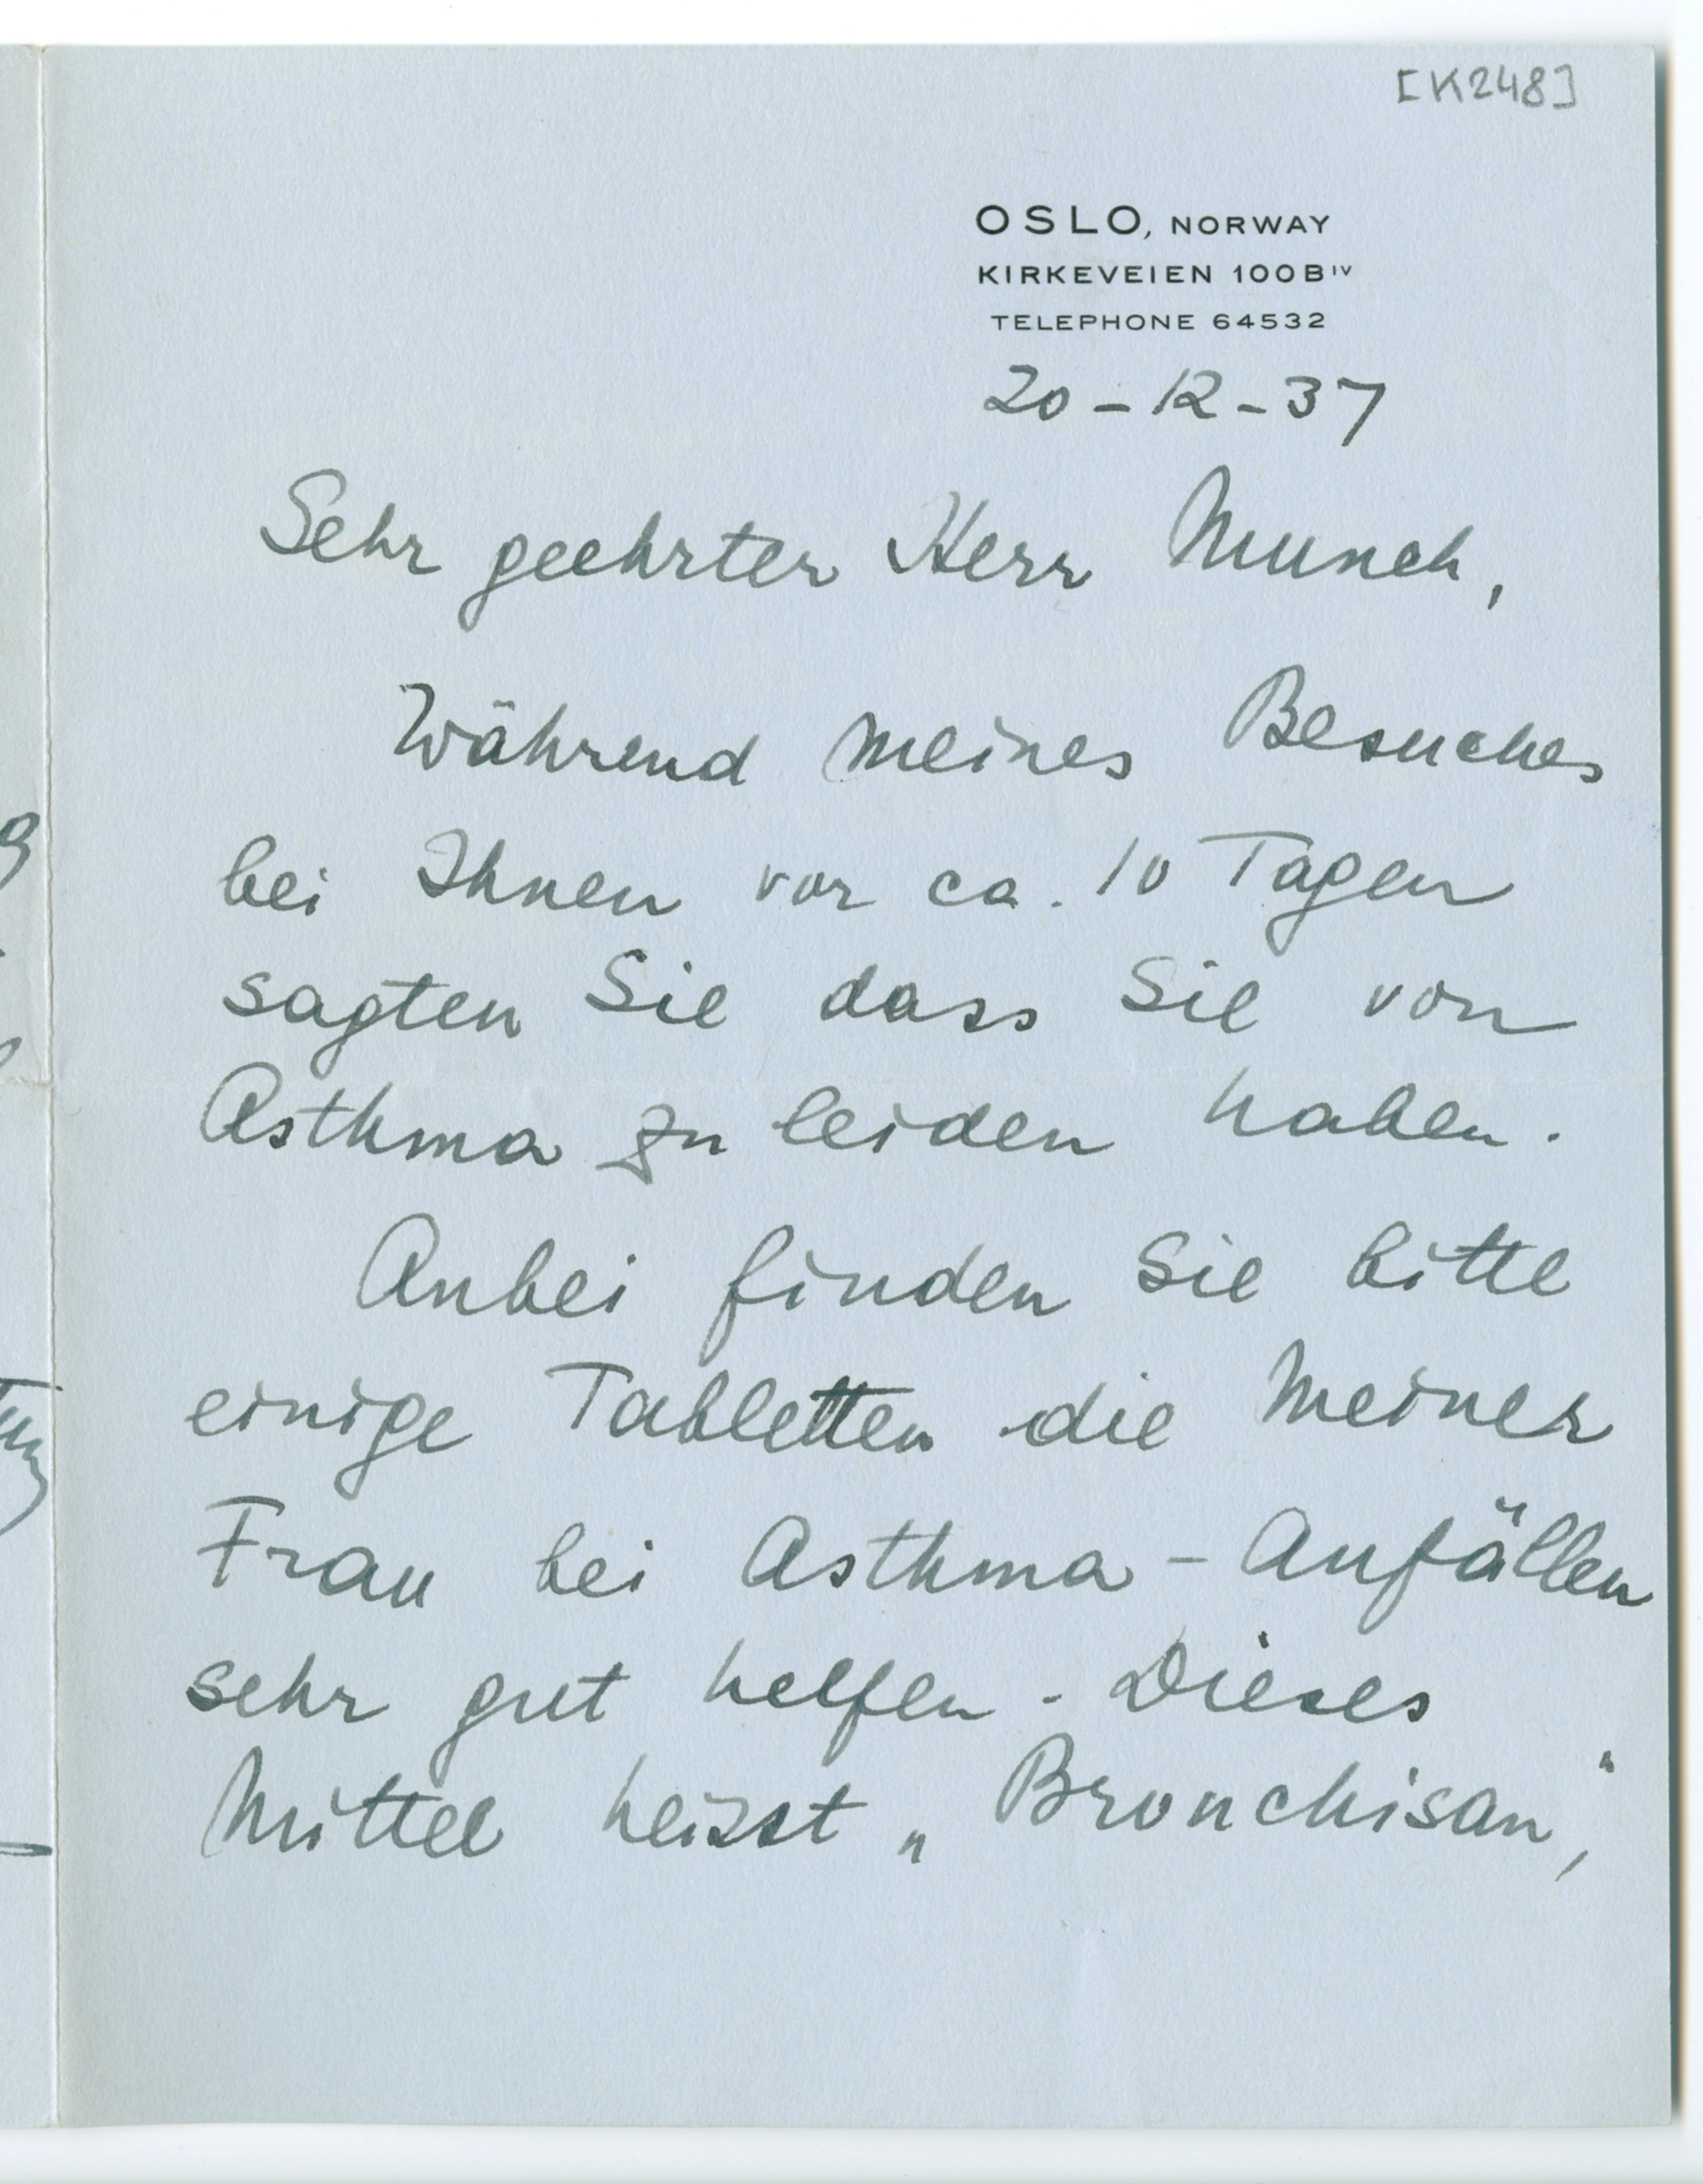 [K248]
OSLO, NORWAY
KIRKEVEIEN 100B IV
TELEPHONE 64532
20-12-37
Sehr geehrter Herr Munch,
Während meines Besuches
bei Ihnen vor ca. 10 Tagen
sagten Sie dass Sie von
Asthma zu leiden haben.
Anbei finden Sie bitte
einige Tabletten die meiner
Frau bei Asthma-Anfällen
sehr gut helfen. Dieses
Mittel heisst „Bronchisan",